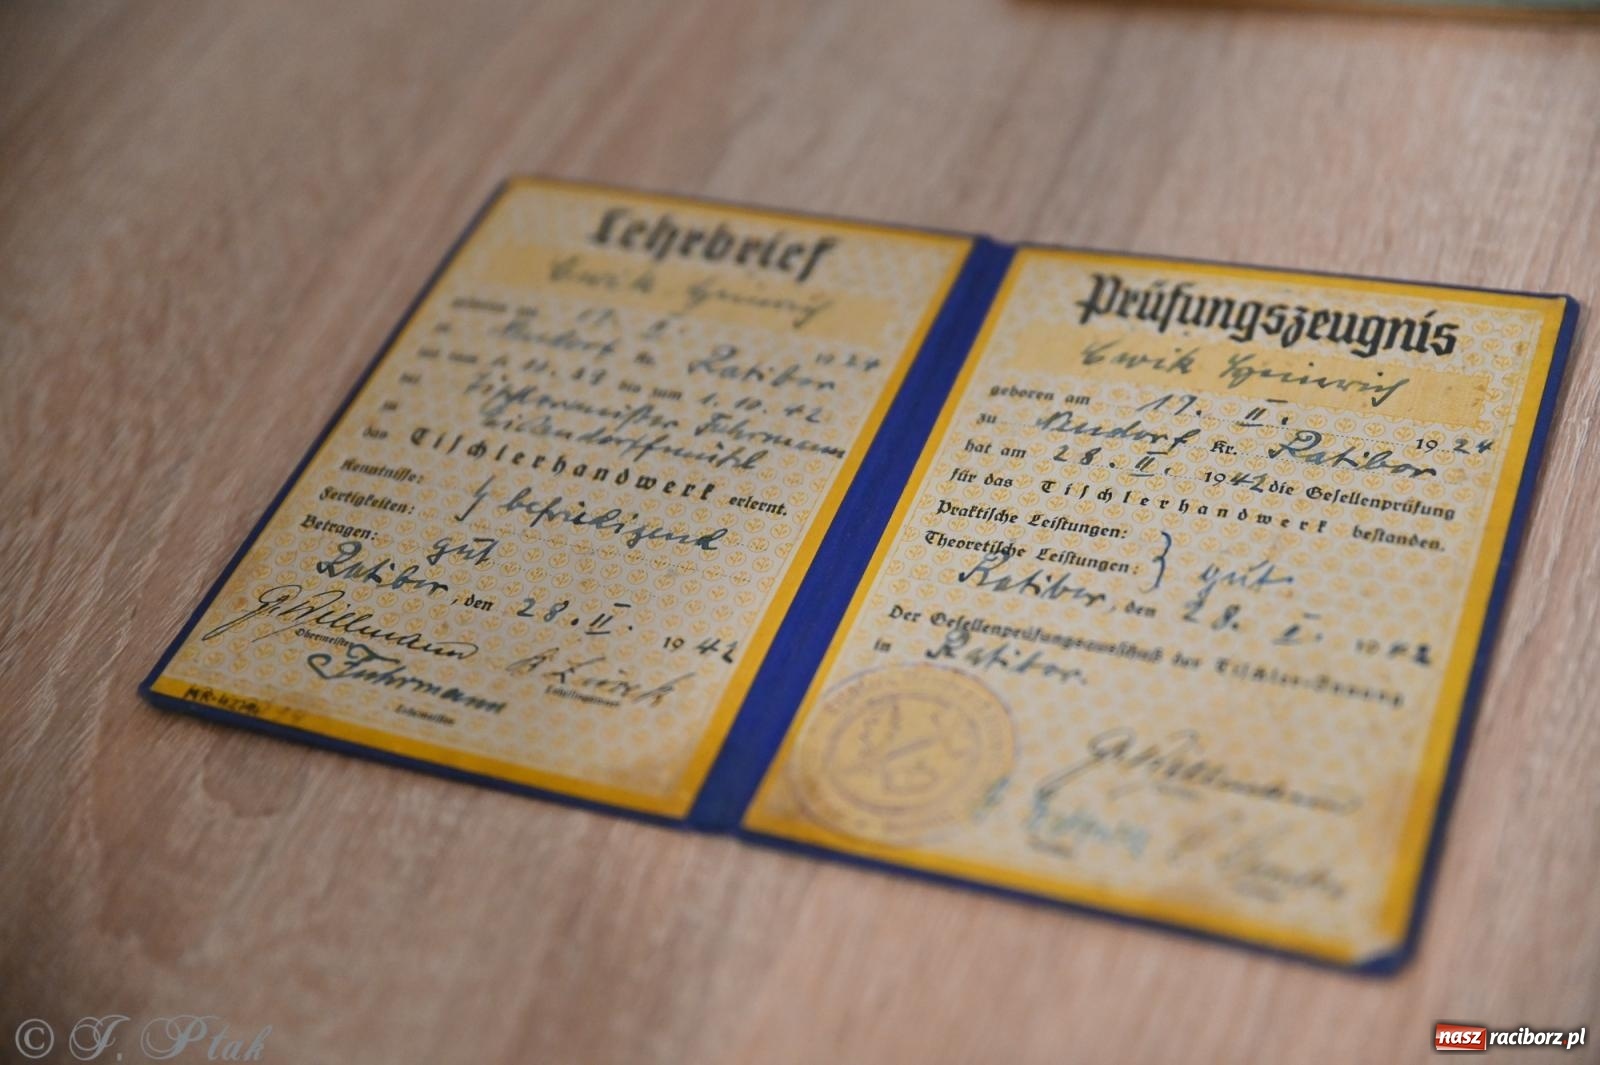 Lehrbrief
Cwik Heinrich
geboren am 17. II. 1924
zu Neudorf Kr. Ratibor
hat vom bis zum 1. 10. 42
bei Tischlermeister Fuhrmann
zu
das Tischlerhandwerk erlernt.
Kenntnisse:
Fertigkeiten: befriedigend
Betragen: gut
Ratibor, den 28. II. 1942
Willmann
Obermeister
Fuhrmann
Lehrmeister
Prüfungszeugnis
Cwik Heinrich
geboren am 17. II. 1924
zu Neudorf Kr. Ratibor
hat am 28. II. 1942 die Gesellenprüfung
für das Tischlerhandwerk bestanden.
Praktische Leistungen:
Theoretische Leistungen: } gut
Ratibor, den 28. II. 1942
Der Gesellenprüfungsausschuß der Tischler-Innung
in Ratibor.
Willmann
© J. Ptak
nasz raciborz.pl